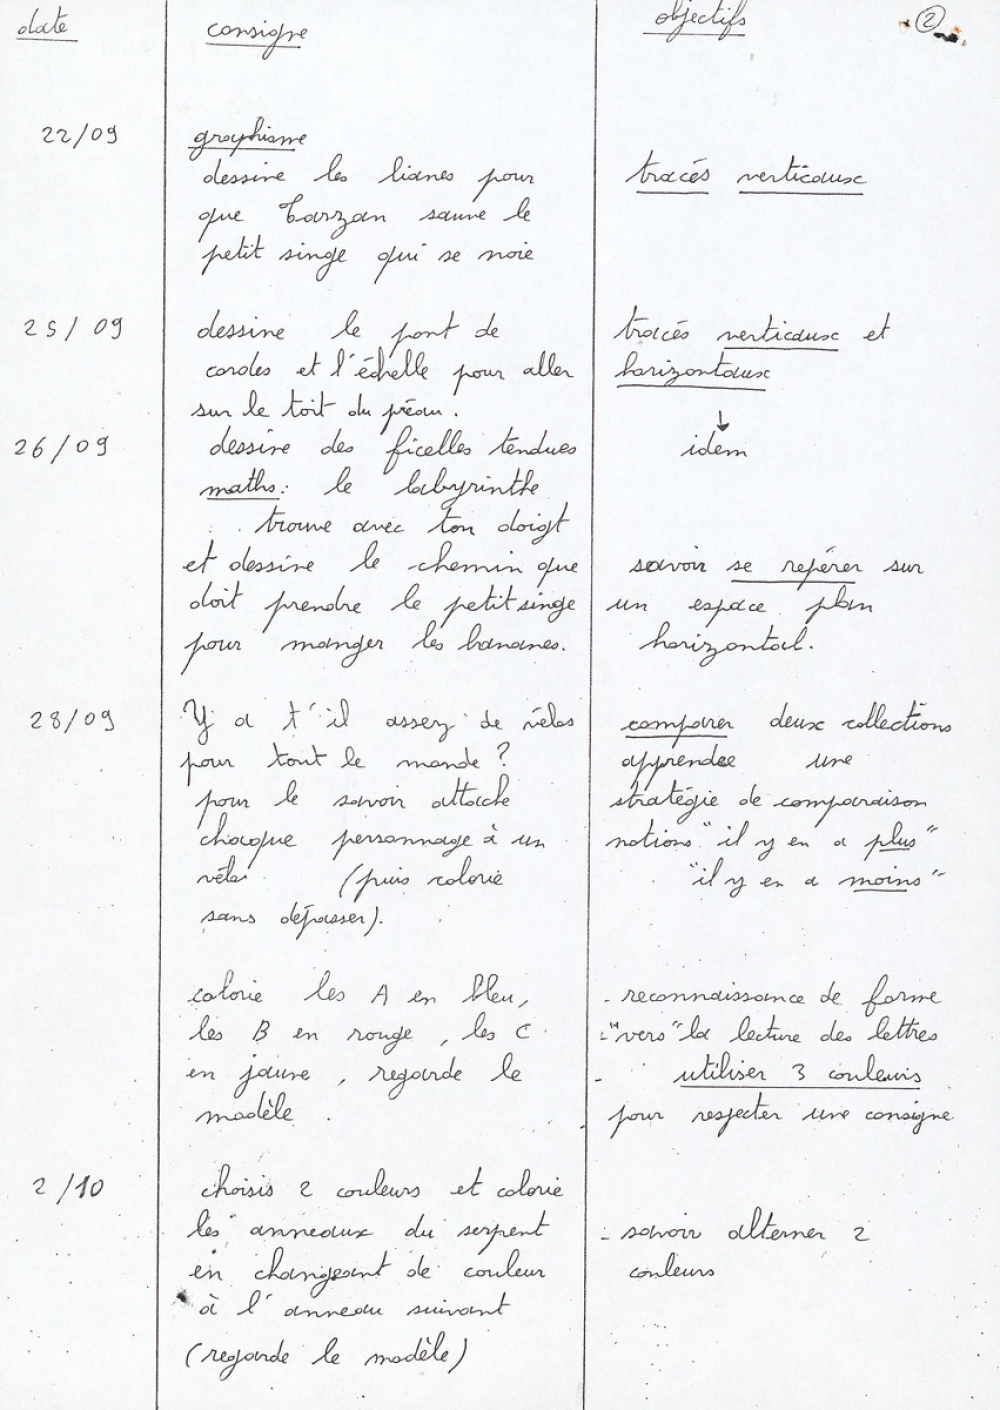 date
consigne
objectifs
2
22/09
graphisme
dessine les lianes pour
que Tarzan sauve le
petit singe qui se noie
tracés verticaux
25/09
dessine le pont de
cordes et l'échelle pour aller
sur le toit du préau.
tracés verticaux et
horizontaux
26/09
dessine des ficelles tendues
idem
maths: le labyrinthe
trouve avec ton doigt
et dessine le chemin que
doit prendre le petit singe
pour manger les bananes.
savoir se repérer sur
un espace plan
horizontal.
28/09
Y a t'il assez de vélos
pour tout le monde ?
pour le savoir attache
chaque personnage à un
vélo (puis colorie
sans dépasser).
comparer deux collections
apprendre une
stratégie de comparaison
notions "il y en a plus"
"il y en a moins"
colorie les A en bleu,
les B en rouge, les C
en jaune, regarde le
modèle.
- reconnaissance de forme
- "vers" la lecture des lettres
- utiliser 3 couleurs
pour respecter une consigne
2/10
choisis 2 couleurs et colorie
les anneaux du serpent
en changeant de couleur
à l'anneau suivant
(regarde le modèle)
- savoir alterner 2
couleurs